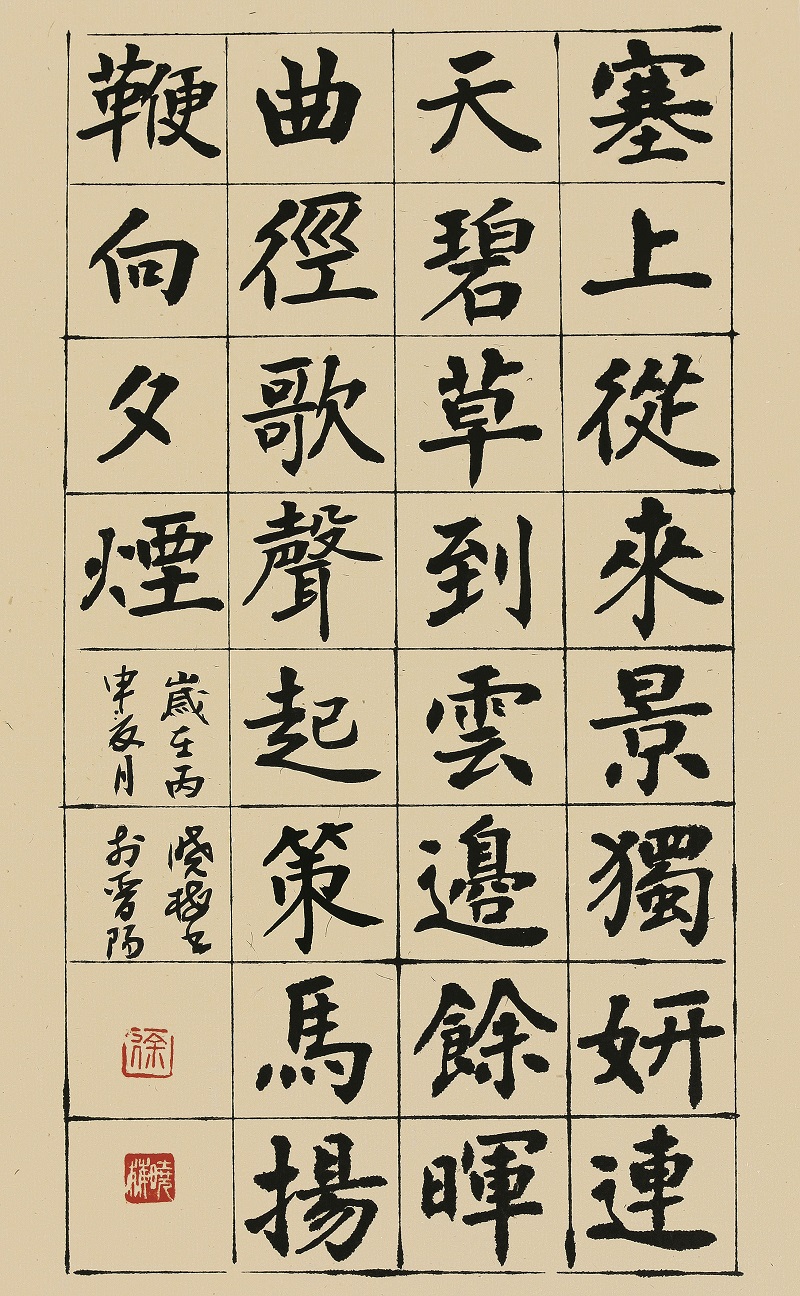 塞上從來景獨妍連
天碧草到雲邊餘暉
曲徑歌聲起策馬揚
鞭向夕煙
歲在丙
申夏月
曉梅書
於晉陽
徐
曉梅